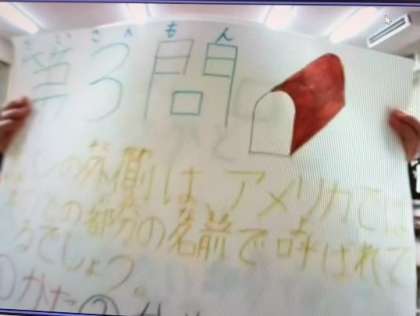 だいさんもん
第3問
の外側は アメリカでは
との部分の名前で呼ばれて
るでしょう。
①かた②